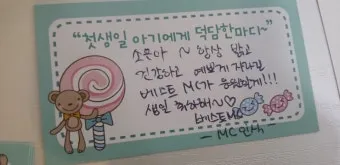 “첫생일 아기에게 덕담한마디~”
소은아 ~ 항상 밝고
건강하고 예쁘게 자라길
베스트 MC가 응원할게!!!
생일 축하해~♡
베스트MC
- MC 민식 -